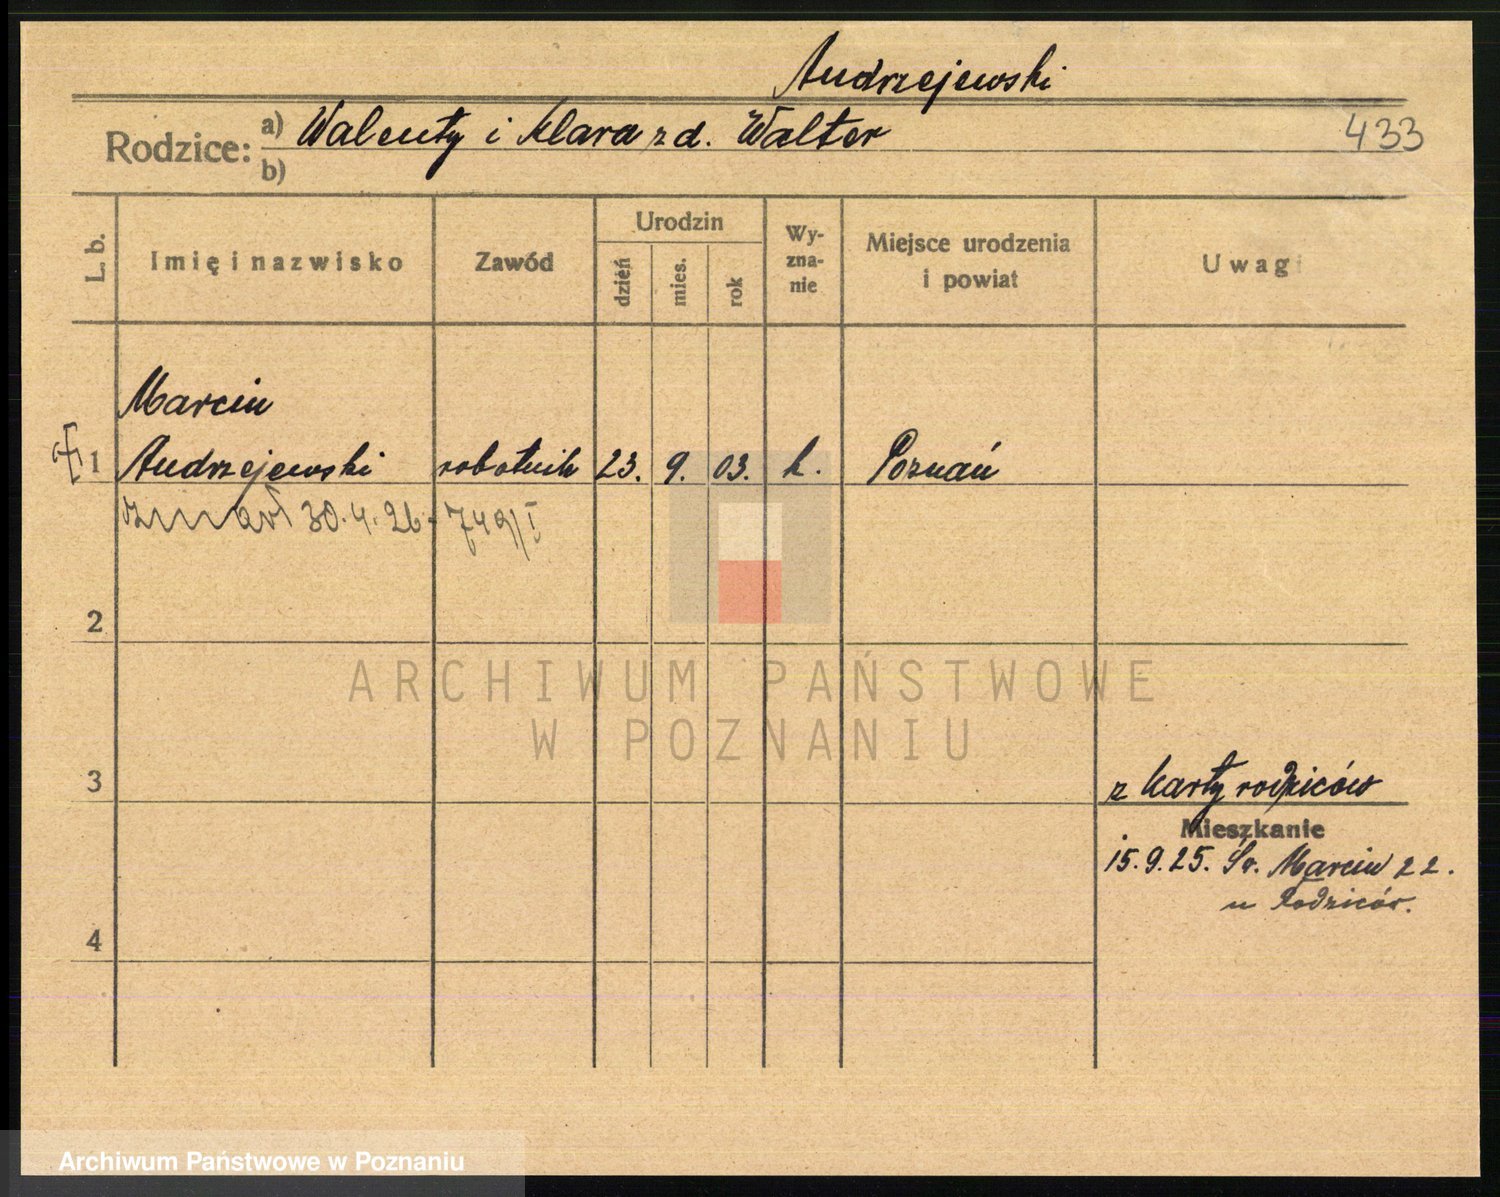 Andrzejewski
Rodzice: a) Walenty i Klara z d. Walter
433
b)
L. b.
Imię i nazwisko
Zawód
Urodzin
dzień
mies.
rok
Wy-
zna-
nie
Miejsce urodzenia
i powiat
Uwagi
Marcin
1 Andrzejewski robotnik 23. 9. 03. k. Poznań
zmarł 30.4.26. 749/I
2
ARCHIWUM PAŃSTWOWE
W POZNANIU
3
z karty rodziców
Mieszkanie
15.9.25. Św. Marcin 22.
u Rodziców.
4
Archiwum Państwowe w Poznaniu